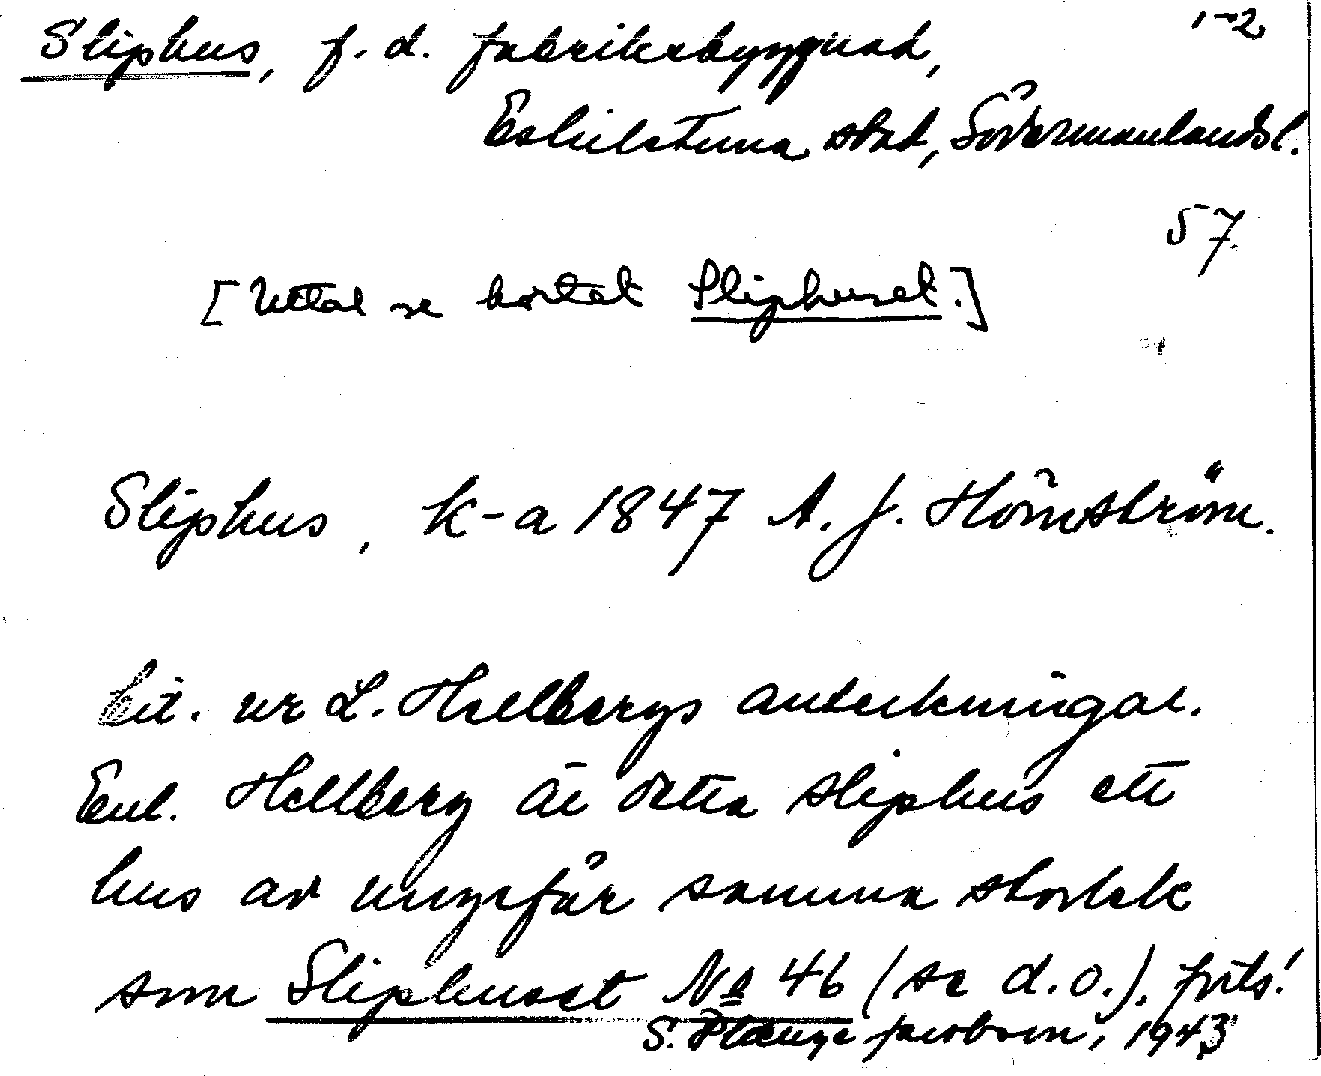 1-2
Sliphus, f. d. fabriksbyggnad,
Eskilstuna stad, Södermanlandsl.
57
[Uttal se kortet Sliphuset.]
Sliphus, k-a 1847 A. J. Hörnström.
Cit. ur L. Hellbergs anteckningar.
Enl. Hellberg är detta sliphus ett
hus av ungefär samma storlek
som Sliphuset No 46 (se d.o.). forts!
S. Jacobson, 1943